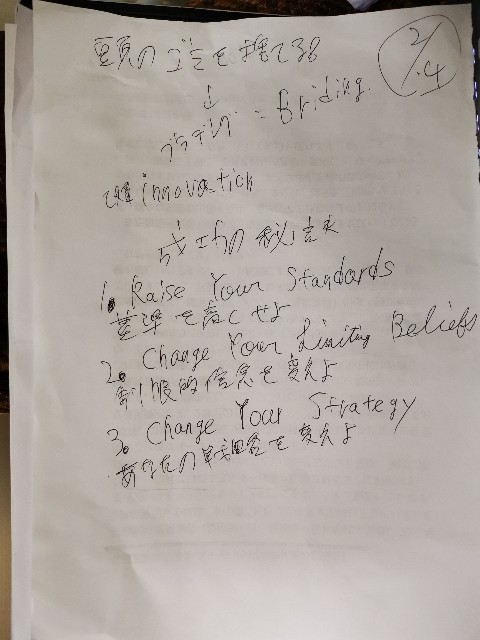 頭のゴミを捨てる
2/.4
↓
= Briding.
innovation
成功の秘訣
1. Raise Your Standards
基準を高くせよ
2. Change Your Limiting Beliefs
制限的信念を変えよ
3. Change Your Strategy
あなたの戦略を変えよ